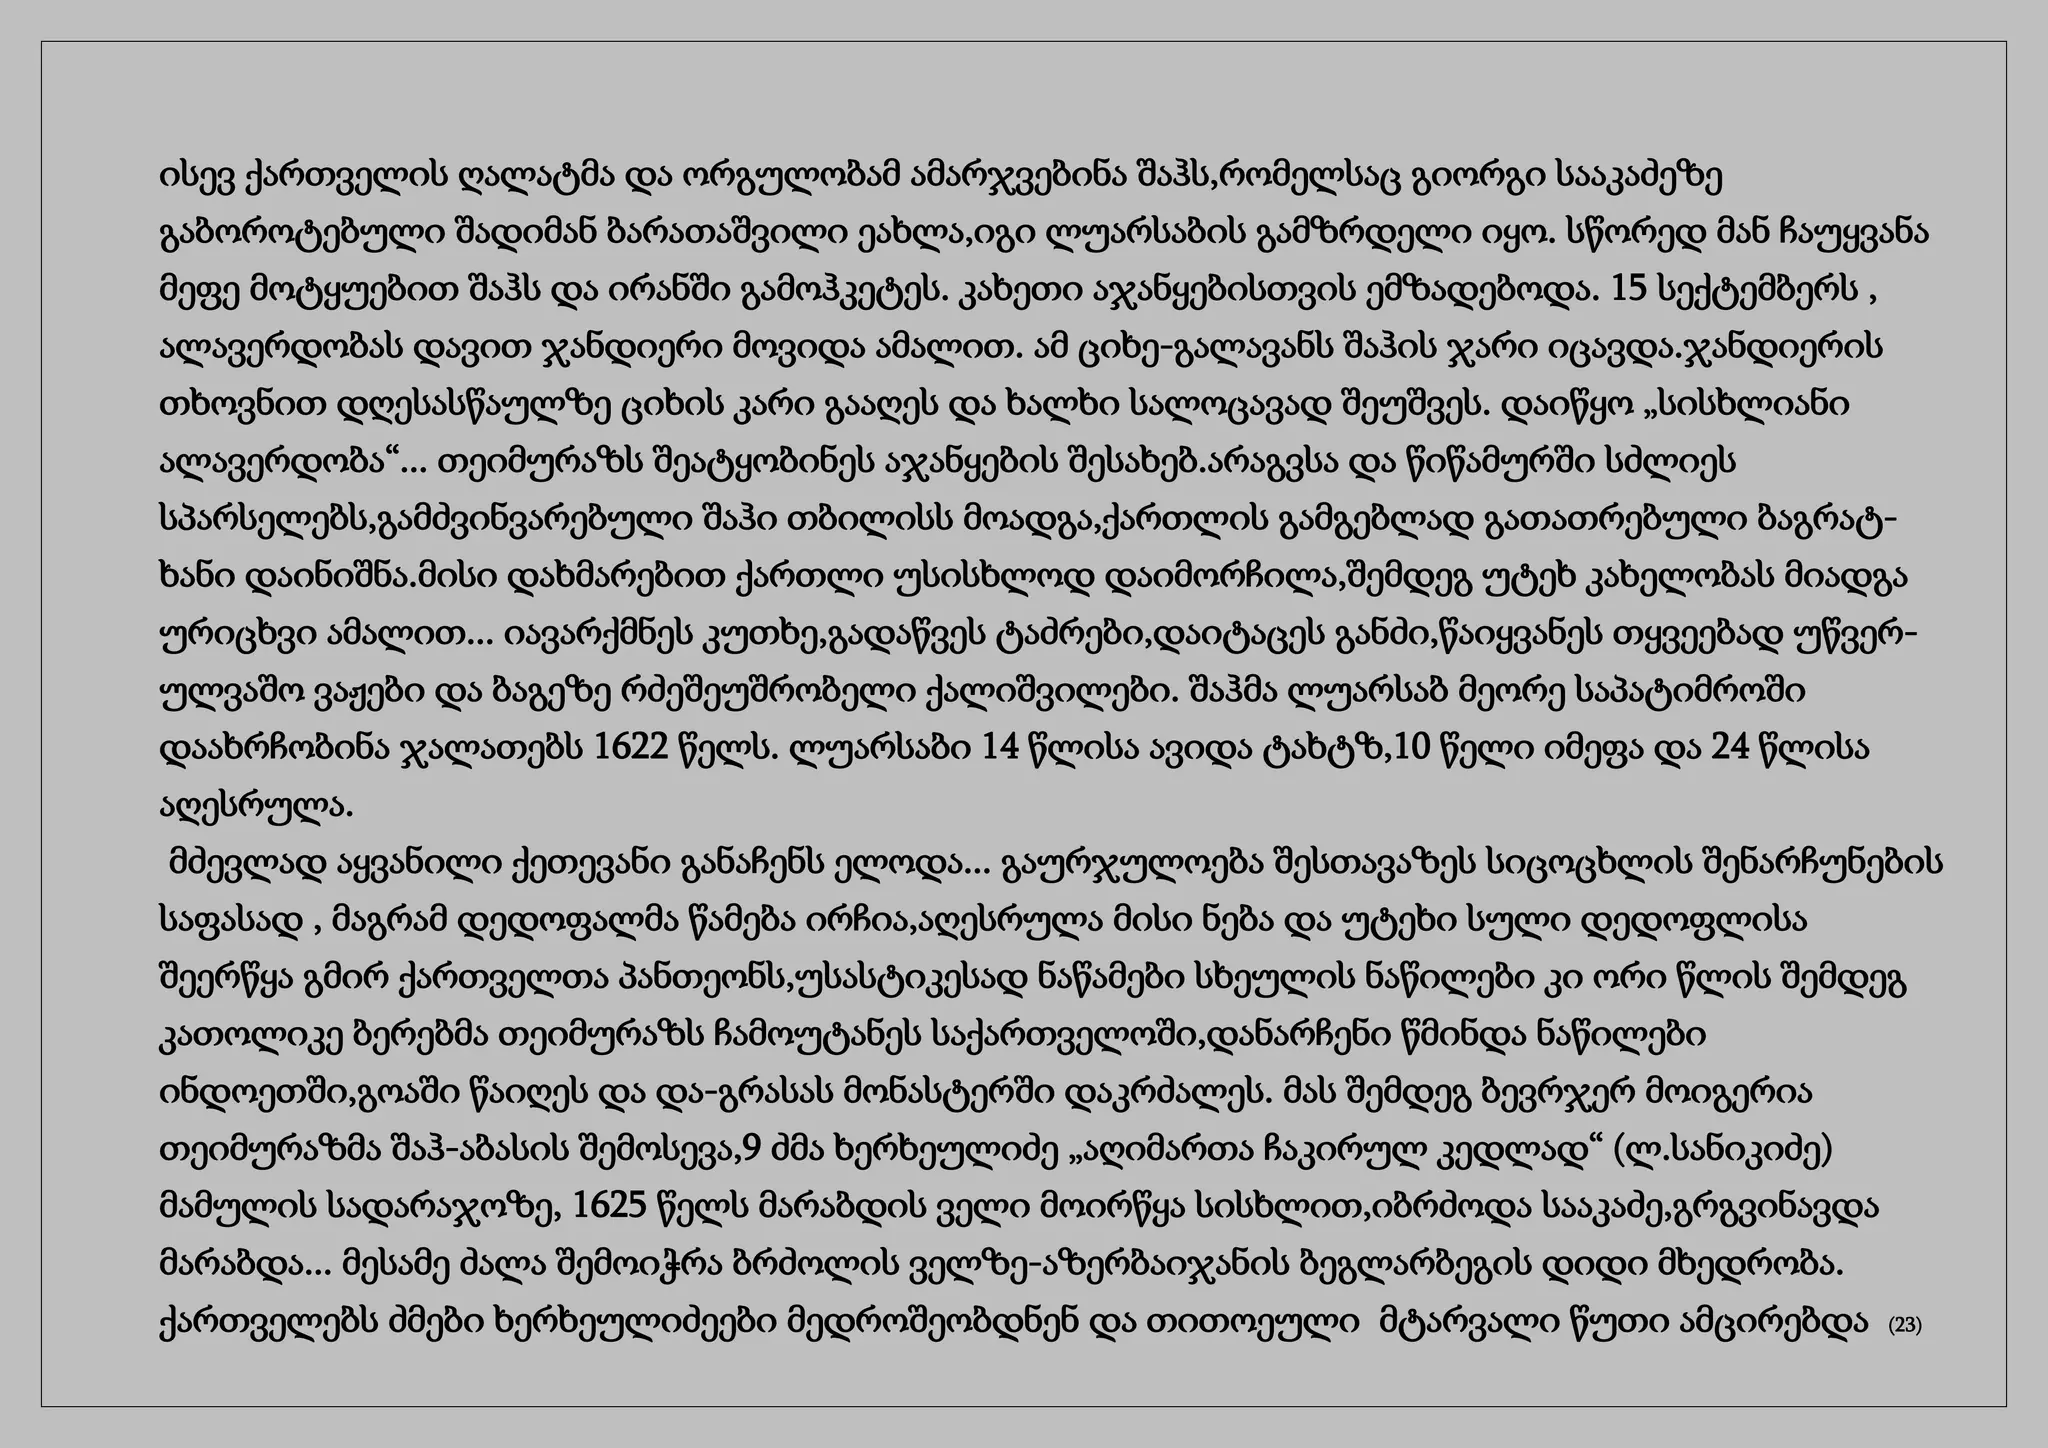 ისევ ქართველის ღალატმა და ორგულობამ ამარჯვებინა შაჰს,რომელსაც გიორგი სააკაძეზე
გაბოროტებული შადიმან ბარათაშვილი ეახლა,იგი ლუარსაბის გამზრდელი იყო. სწორედ მან ჩაუყვანა
მეფე მოტყუებით შაჰს და ირანში გამოჰკეტეს. კახეთი აჯანყებისთვის ემზადებოდა. 15 სექტემბერს ,
ალავერდობას დავით ჯანდიერი მოვიდა ამალით. ამ ციხე-გალავანს შაჰის ჯარი იცავდა.ჯანდიერის
თხოვნით დღესასწაულზე ციხის კარი გააღეს და ხალხი სალოცავად შეუშვეს. დაიწყო „სისხლიანი
ალავერდობა“... თეიმურაზს შეატყობინეს აჯანყების შესახებ.არაგვსა და წიწამურში სძლიეს
სპარსელებს,გამძვინვარებული შაჰი თბილისს მოადგა,ქართლის გამგებლად გათათრებული ბაგრატ-
ხანი დაინიშნა.მისი დახმარებით ქართლი უსისხლოდ დაიმორჩილა,შემდეგ უტეხ კახელობას მიადგა
ურიცხვი ამალით... იავარქმნეს კუთხე,გადაწვეს ტაძრები,დაიტაცეს განძი,წაიყვანეს თყვეებად უწვერ-
ულვაშო ვაჟები და ბაგეზე რძეშეუშრობელი ქალიშვილები. შაჰმა ლუარსაბ მეორე საპატიმროში
დაახრჩობინა ჯალათებს 1622 წელს. ლუარსაბი 14 წლისა ავიდა ტახტზ,10 წელი იმეფა და 24 წლისა
აღესრულა.
მძევლად აყვანილი ქეთევანი განაჩენს ელოდა... გაურჯულოება შესთავაზეს სიცოცხლის შენარჩუნების
საფასად , მაგრამ დედოფალმა წამება ირჩია,აღესრულა მისი ნება და უტეხი სული დედოფლისა
შეერწყა გმირ ქართველთა პანთეონს,უსასტიკესად ნაწამები სხეულის ნაწილები კი ორი წლის შემდეგ
კათოლიკე ბერებმა თეიმურაზს ჩამოუტანეს საქართველოში,დანარჩენი წმინდა ნაწილები
ინდოეთში,გოაში წაიღეს და და-გრასას მონასტერში დაკრძალეს. მას შემდეგ ბევრჯერ მოიგერია
თეიმურაზმა შაჰ-აბასის შემოსევა,9 ძმა ხერხეულიძე „აღიმართა ჩაკირულ კედლად“ (ლ.სანიკიძე)
მამულის სადარაჯოზე, 1625 წელს მარაბდის ველი მოირწყა სისხლით,იბრძოდა სააკაძე,გრგვინავდა
მარაბდა... მესამე ძალა შემოიჭრა ბრძოლის ველზე-აზერბაიჯანის ბეგლარბეგის დიდი მხედრობა.
ქართველებს ძმები ხერხეულიძეები მედროშეობდნენ და თითოეული მტარვალი წუთი ამცირებდა (23)